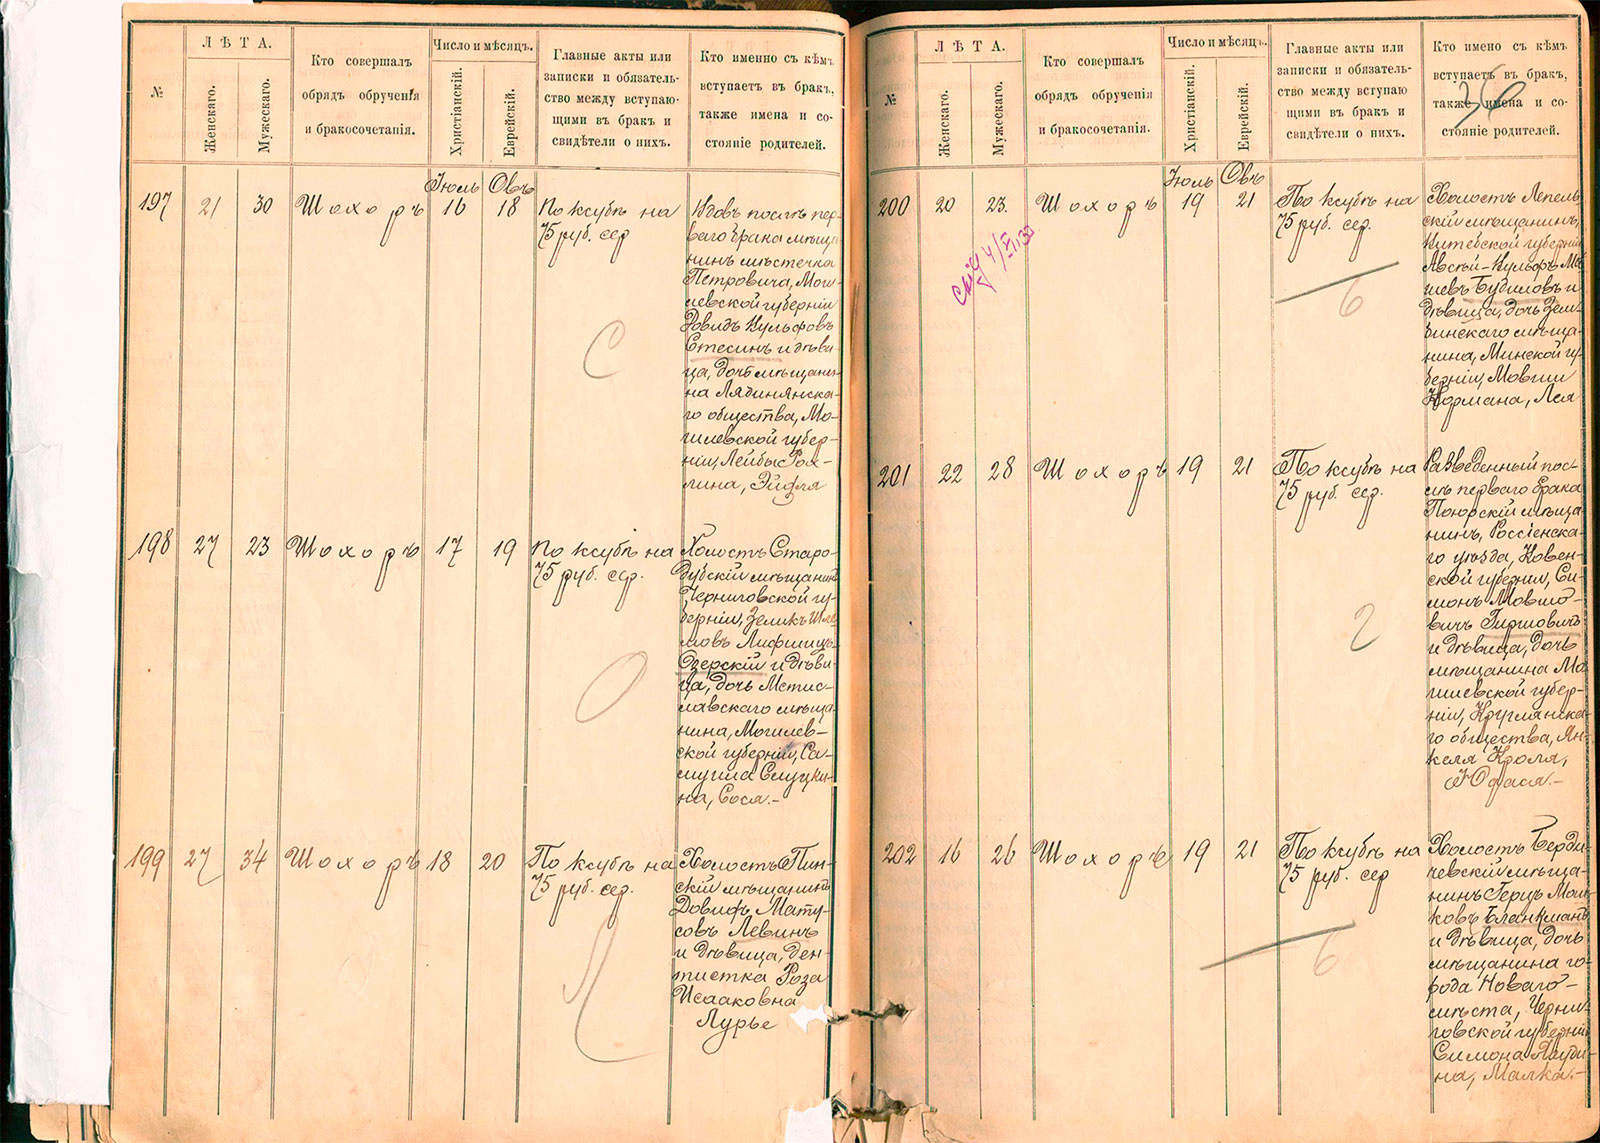 №
ЛѢТА.
Женскаго.
Мужескаго.
Кто совершалъ
обрядъ обрученія
и бракосочетанія.
Число и мѣсяцъ.
Христіанскій.
Еврейскій.
Главные акты или
записки и обязатель-
ство между вступаю-
щими въ бракъ и
свидѣтели о нихъ.
Кто именно съ кѣмъ
вступаетъ въ бракъ,
также имена и со-
стояніе родителей.
Іюль Овъ
197 21 30 Шохоръ 16 18
По ксубѣ на
75 руб. сер
Вдовъ послѣ пер-
ваго брака мѣща
нинъ мѣстечка
Петровича, Моги
левской губерніи
Довидъ Вульфовъ
Стесинъ и дѣви
ца, дочь мѣщани-
на Лядинянска-
го общества, Мо-
гилевской губер-
ніи, Лейбы
Эйдля
198 27 23 Шохоръ 17 19
По ксубѣ на
75 руб. сер.
Холостъ Старо-
дубскій мѣщанинъ
Черниговской гу-
берніи, Зеликъ
Лифшицъ-
Озерскій и дѣви-
ца, дочь Мстис-
лавскаго мѣща
нина, Могилев-
ской губерніи, Са-
муила Слуцки-
на, Сося.-
199 27 34 Шохоръ 18 20
По ксубѣ на
75 руб. сер.
Холостъ Пин-
скій мѣщанинъ
Довидъ Мату-
совъ Левинъ
и дѣвица, ден-
тистка Роза
Исааковна
Лурье
С
О
Л
№
ЛѢТА.
Женскаго.
Мужескаго.
Кто совершалъ
обрядъ обрученія
и бракосочетанія.
Число и мѣсяцъ.
Христіанскій.
Еврейскій.
Главные акты или
записки и обязатель-
ство между вступаю
щими въ бракъ и
свидѣтели о нихъ.
Кто именно съ кѣмъ
вступаетъ въ бракъ,
также имена и со-
стояніе родителей.
36
Іюль Овъ
200 20 23. Шохоръ 19 21
По ксубѣ на
75 руб. сер.
Холостъ Лепель
скій мѣщанинъ,
Витебской губерніи
Вульфъ Мов
шевъ Будиловъ и
дѣвица, дочь Зем
бинскаго мѣща-
нина, Минской гу
берніи, Мовши
Нормана, Лея
201 22 28 Шохоръ 19 21
По ксубѣ на
75 руб. сер.
Разведенный пос-
лѣ перваго брака
Поюрскій мѣща
нинъ, Россіенска-
го уѣзда, Ковен-
ской губерніи, Си-
монъ Мовшо-
вичъ Гиршовичъ
и дѣвица, дочь
мѣщанина Мо
гилевской губер-
ніи, Круглянска-
го общества, Ян-
келя Кроля,
Юдася.-
202 16 26 Шохоръ 19 21
По ксубѣ на
75 руб. сер
Холостъ Берди
чевскій мѣща-
нинъ Герцъ Мош
ковъ Бланкманъ
и дѣвица, дочь
мѣщанина го-
рода Новаго-
мѣста, Черни-
говской губерніи
Симона
на, Малка.-
Б
Г
Б